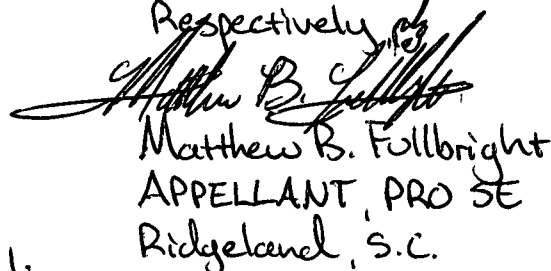 Respectively,
Matthew B. Fullbright
Matthew B. Fullbright
APPELLANT, PRO SE
Ridgeland, S.C.